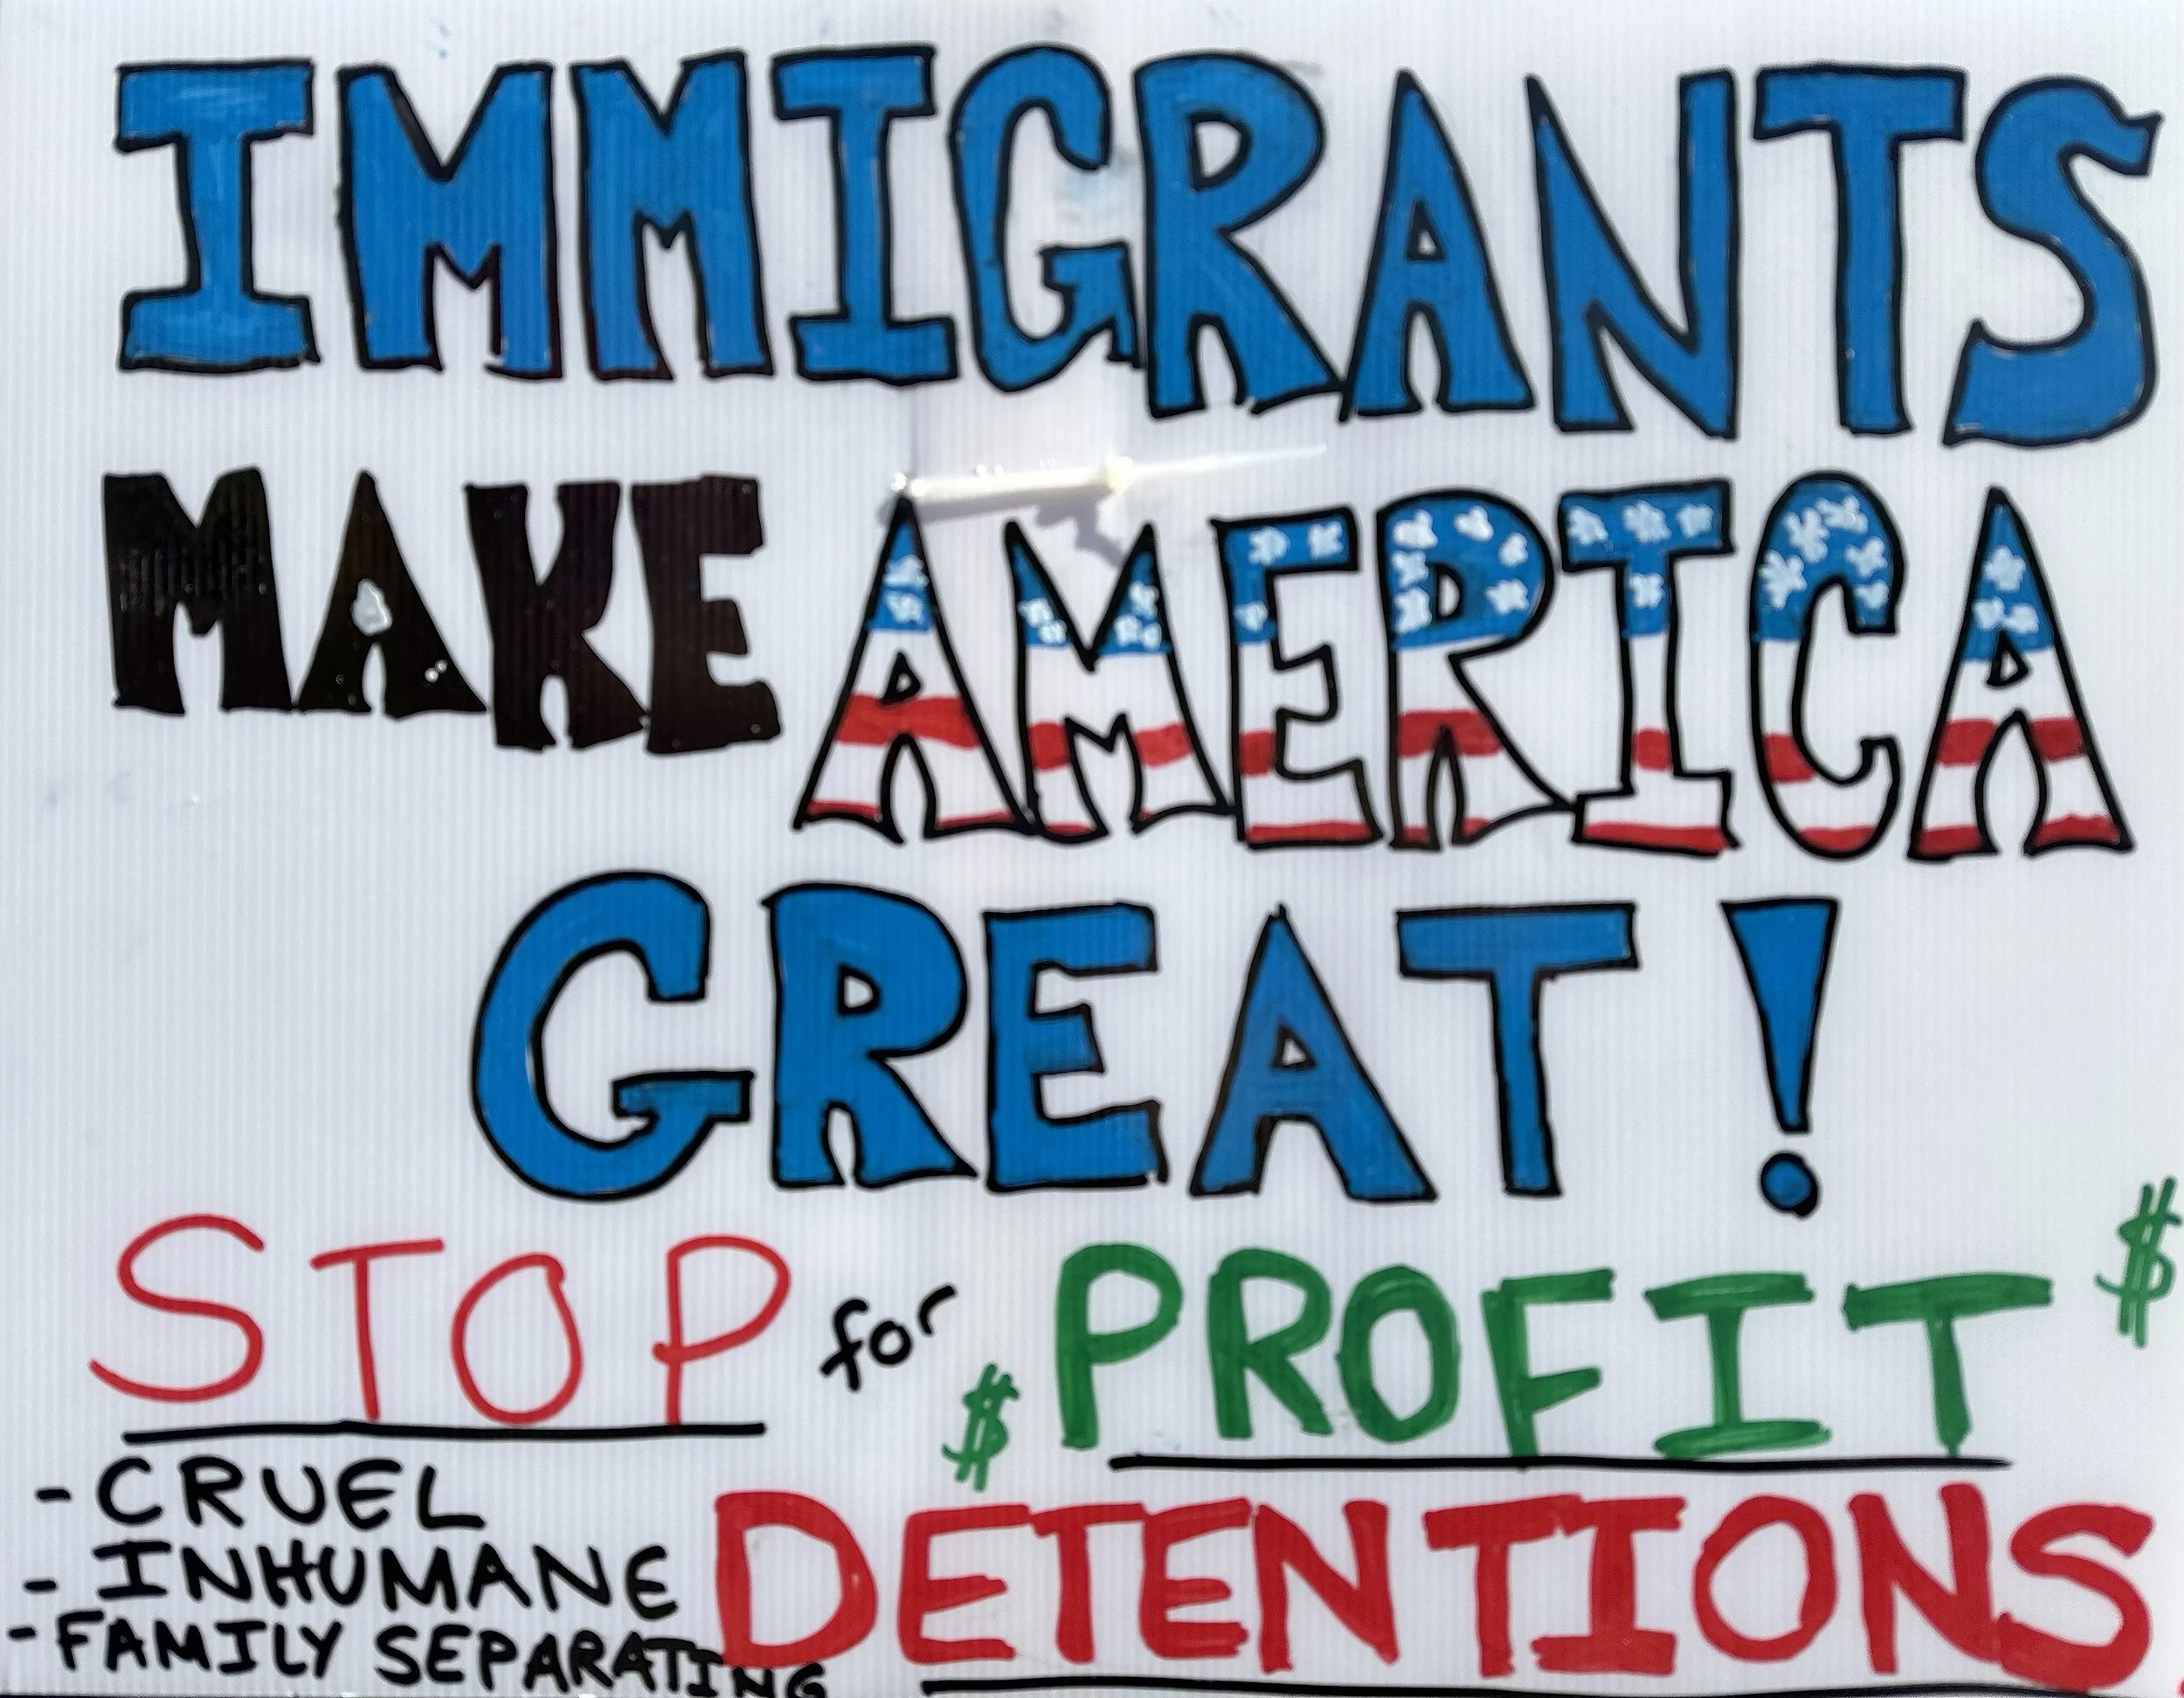 IMMIGRANTS
MAKE AMERICA
GREAT!
STOP for $ PROFIT $
DETENTIONS
- CRUEL
- INHUMANE
- FAMILY SEPARATING